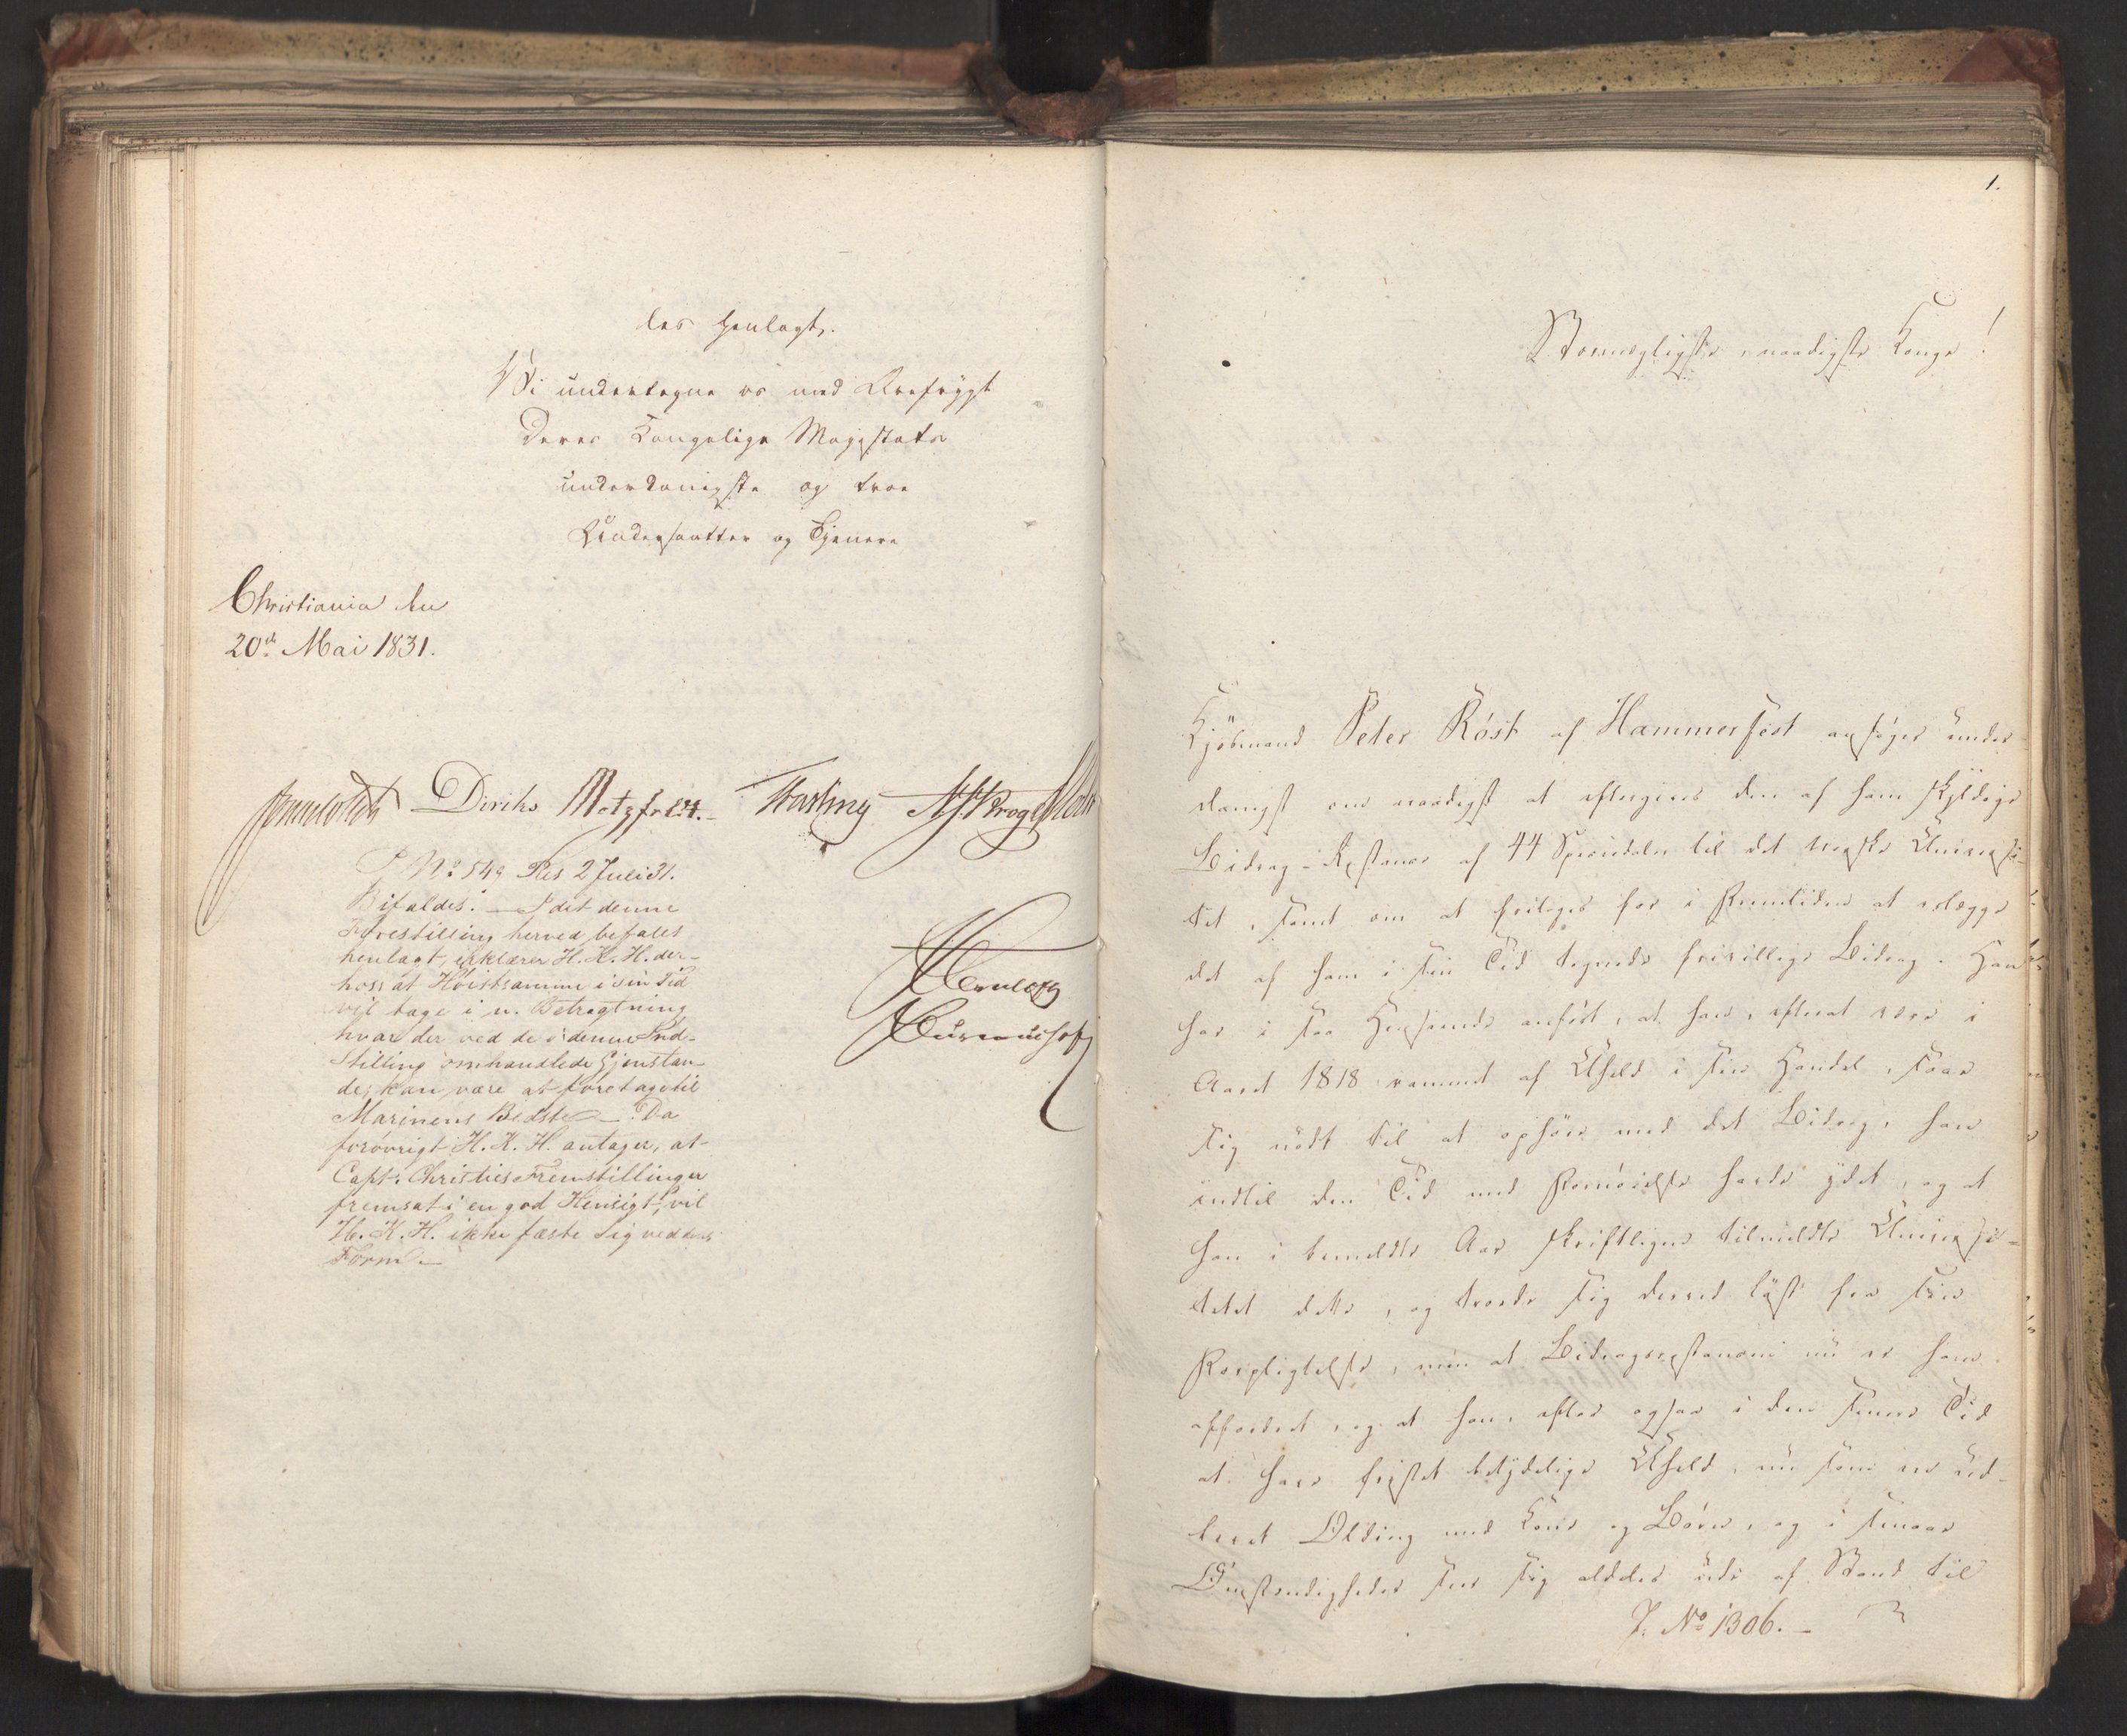 des henlagt.
Vi undertegne os med Ærefrygt
Deres Kongelige Majestæts
underdanigste og troe
Undersaatter og Tjenere
Christiania den
20d Mai 1831.
Diriks Motzfeldt. N. J. Krog
P. No 549 Res 2 Juli 31.
Bifaldes. — Idet denne
Forestilling herved befales
henlagt, erklærer H. K. H. der-
hoss at Høistsamme i sin Tid
vil tage i n. Betragtning
hvar der ved de i denne Ind-
stilling omhandlede Gjenstan-
de, kan være at foretage til
Marinens Bedste. — Da
forøvrigt H. K. H. antager, at
Capt. Christies Fremstillinger
fremsat i en god Hensigt, vil
H. K. H. ikke fæste Sig ved dens
Form. —
1.
Stormægtigste, naadigste Konge!
Kjøbmand Peter Röst af Hammerfest ansøger under-
danigst om naadigst at eftergives den af ham skyldige
Bidrag-Restance af 44 Speciedaler til det norske Universi-
tet, samt om at fritages for i Fremtiden at erlægge
det af ham i sin Tid tegnede frivillige Bidrag. Han
har i saa Henseende anført, at han, efterat være i
Aaret 1818 rammet af Uheld i sin Handel, saae
sig nødt til at ophøre med det Bidrag, han
indtil den Tid med Fornøielse havde ydet, og at
han i bemeldte Aar skriftligen tilmeldte Universi-
tetet dette, og troede sig derved løst fra sin
Forpligtelse, men at Bidragsrestancen nu er ham
affordret, og at han, efter ogsaa i den senere Tid
at have fristet betydelige Uheld, nu som en ud-
levet Olding med Kone og Børn, og i smaae
Omstændigheder seer sig aldeles ude af Stand til
J. No 1306. —